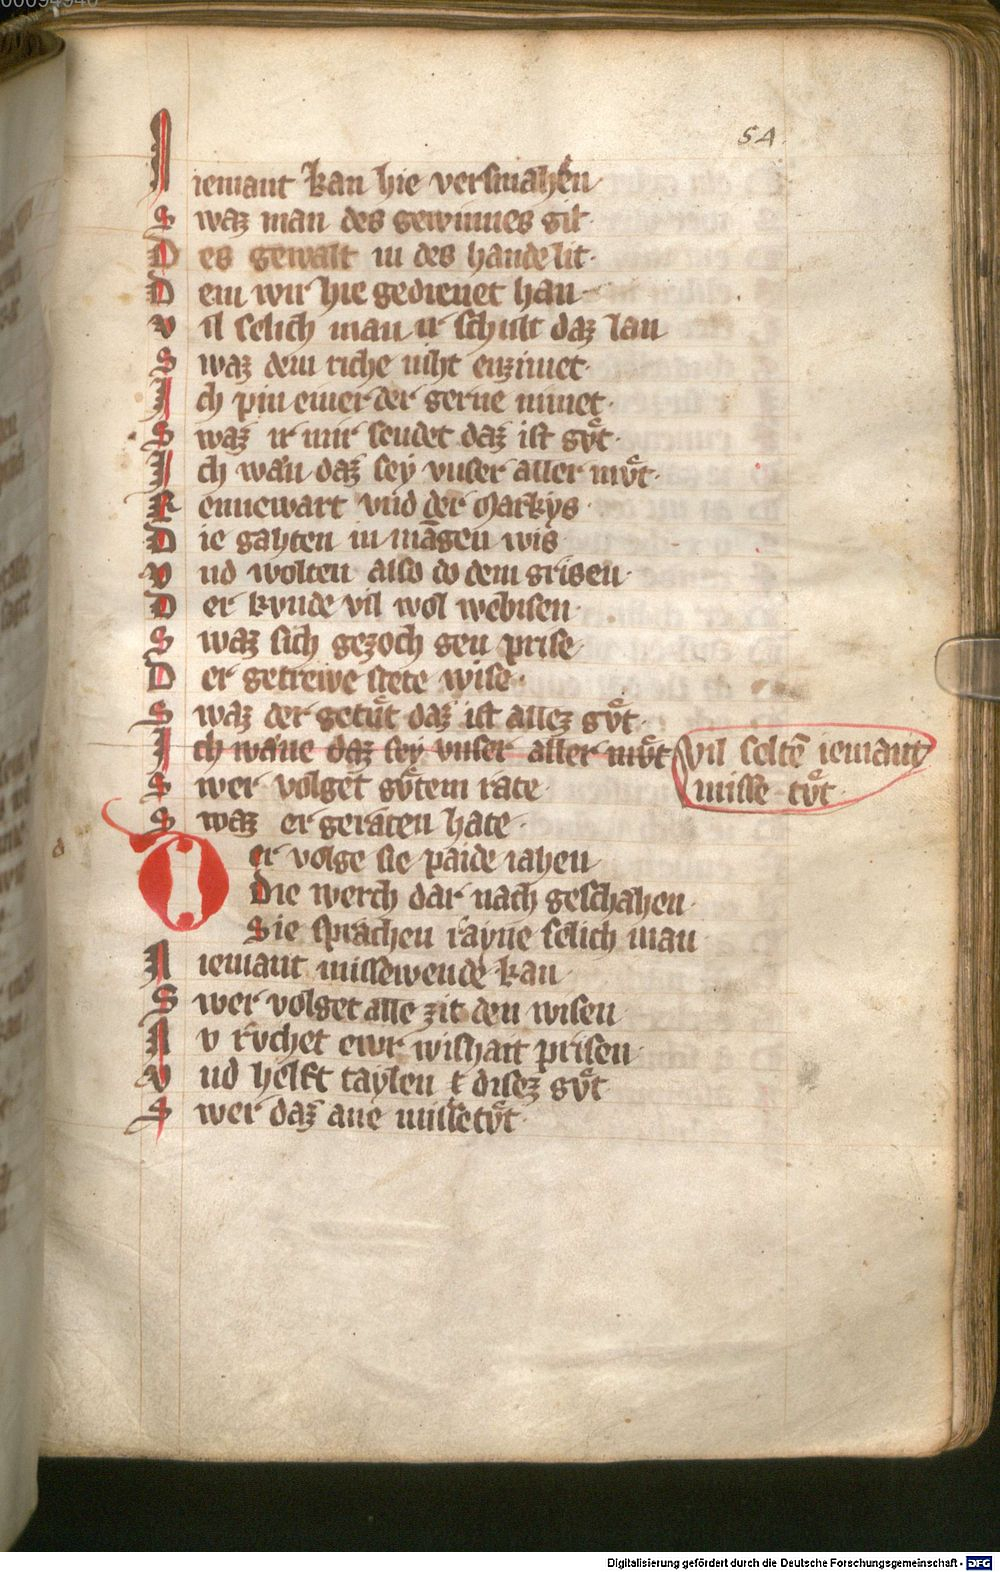 00094940
54
N iemant kan hie versmahen
S waz man des gewinnes git·
D es gewalt in des hande lit·
D em wir hie gedienet han·
V il selich man ir schult daz lan
S waz dem riche niht enzimet·
I ch pin einer der gerne nimet·
S waz ir mir sendet daz ist gůt·
I ch wan daz sey vnser aller můt·
R ennewart vnd der Markys·
D ie gahten in mangen wis
V nd wolten also do dem grisen·
D er kvnde vil wol webisen·
S waz sich gezoch gen prise·
D er getrewe stete wise·
S waz der getůt daz ist allez gůt·
I ch wane daz sey vnser aller můt vil seltē iemant
misse tůt·
S wer volget gůtem rate·
S waz er geraten hate·
D er volge sie paide iahen
Die werch dar nach geschahen·
Sie sprachen rayne selich man
N iemant missewende kan·
S wer volget alle zit den wisen·
N v rvchet ewr wishait prisen·
V nd helft taylen t disez gůt
S wer daz ane missetůt·
Digitalisierung gefördert durch die Deutsche Forschungsgemeinschaft - DFG